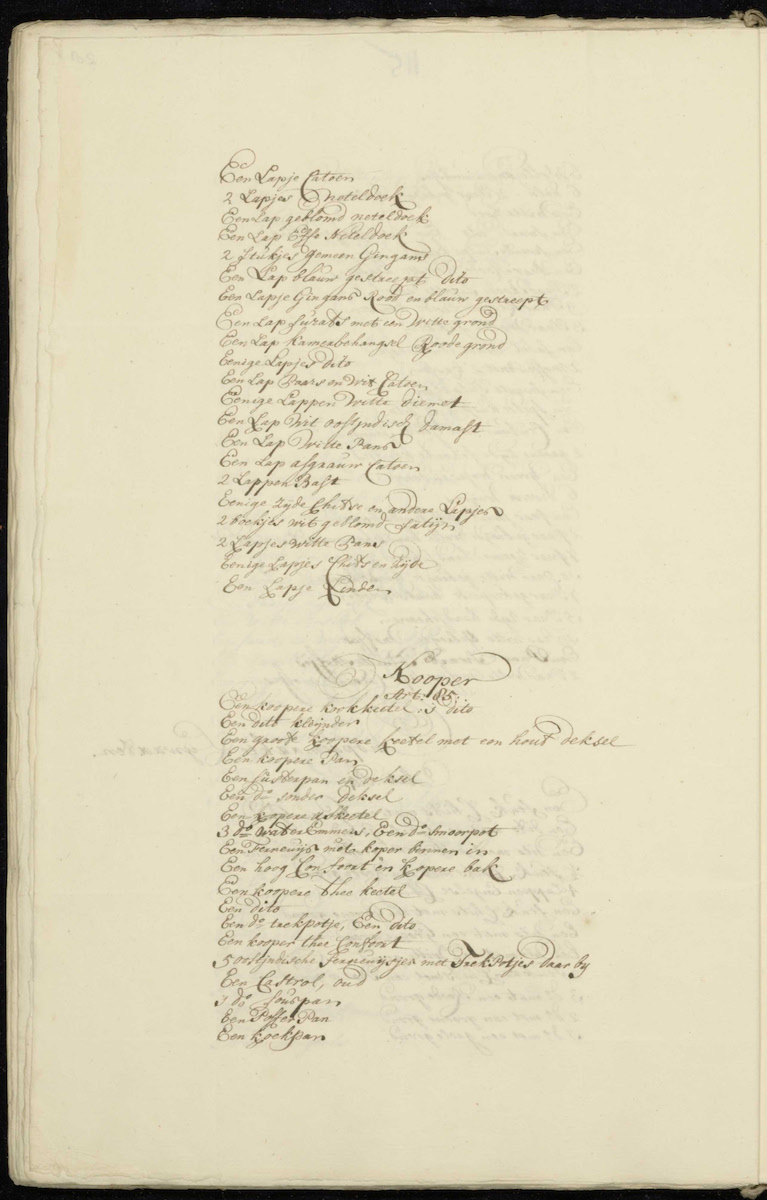 Een Lapje Catoen
2 Lapjes Neteldoek
Een Lap geblomd neteldoek
Een Lap Effe Neteldoek
2 stukjes gemeen Gingans
Een Lap blauw gestreept dito
Een Lapje Gingans Rood en blauw gestreept
Een Lap Surats met een Witte grond
Een Lap kamerbehangsel Roode grond
Eenige Lapjes dito
Een Lap Paars en Wit Catoen
Eenige Lappen Witte diemet
Een Lap Wit oostjndisch damast
Een Lap Witte Pans
Een Lap asgrauw Catoen
2 Lappen Bast
Eenige Zyde Chitse en andere Lapjes
2 boekjes wit geblomd Satijn
2 Lapjes Witte Pans
Eenige Lapjes Chits en Zijde
Een Lapje Linden
Kooper
Art: 85:
Een koopere kookketel 1 dito
Een dito kleijnder
Een groote koopere keetel met een hout deksel
Een koopere Pan
Een susterpan en deksel
Een do sonder deksel
Een kopere keetel
3 do water Emmers, Een do Smoorpot
Een met koper binnen in
Een hoog Confoort en kopere bak
Een koopere thee keetel
Een dito
Een do trekpotje, Een dito
Een kooper thee Confoort
5 oostjndische met TrekPotjes daar by
Een Castrol, oud
1 do souspan
Een Poffer Pan
Een koekpan